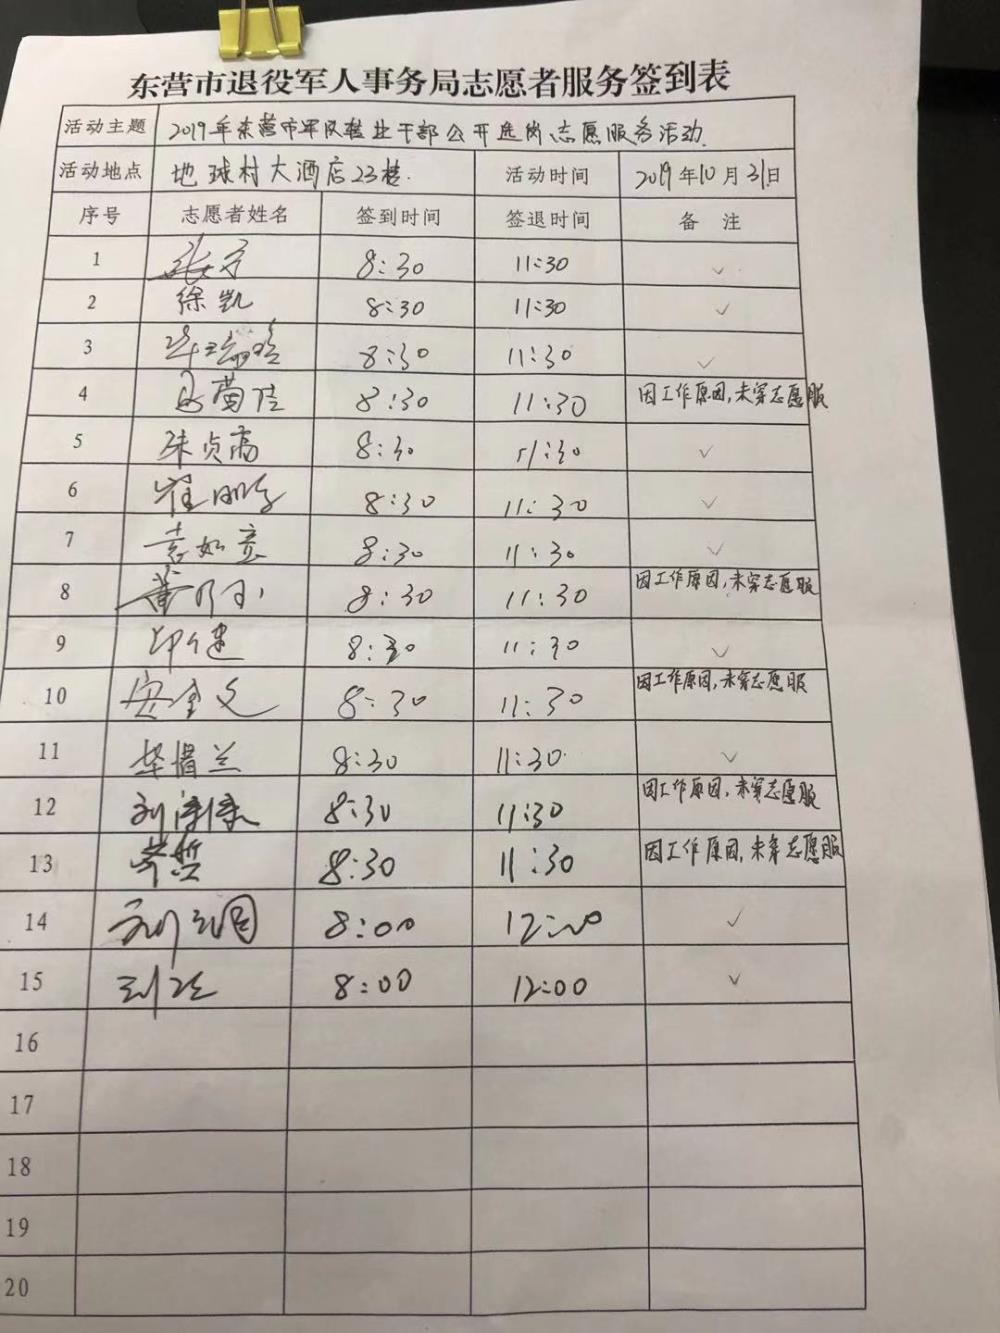 东营市退役军人事务局志愿者服务签到表
活动主题 2019年东营市军队转业干部公开选岗志愿服务活动.
活动地点 地球村大酒店23楼. 活动时间 2019年10月31日
序号 志愿者姓名 签到时间 签退时间 备 注
1 8:30 11:30 ✓
2 徐凯 8:30 11:30 ✓
3 8:30 11:30 ✓
4 8:30 11:30 因工作原因,未穿志愿服
5 朱贞高 8:30 11:30 ✓
6 8:30 11:30 ✓
7 袁如意 8:30 11:30 ✓
8 8:30 11:30 因工作原因,未穿志愿服
9 8:30 11:30 ✓
10 8:30 11:30 因工作原因,未穿志愿服
11 8:30 11:30 ✓
12 8:30 11:30 因工作原因,未穿志愿服
13 8:30 11:30 因工作原因,未穿志愿服
14 8:00 12:00 ✓
15 8:00 12:00 ✓
16
17
18
19
20